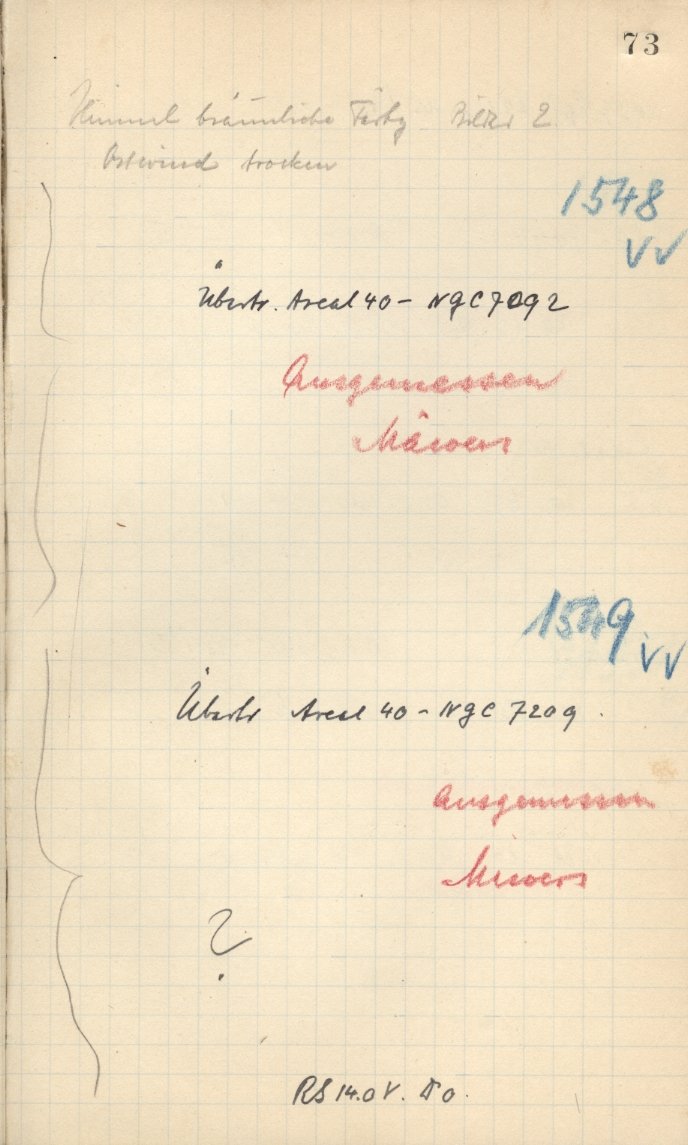 73
Himmel bräunliche Färbg Bilder 2
Ostwind trocken
1548
VV
Übertr. Areal 40 - NGC 7092
Ausgemessen
1549
VV
Übertr Areal 40 - NGC 7209.
Ausgemessen
?
RS 14.0 V.